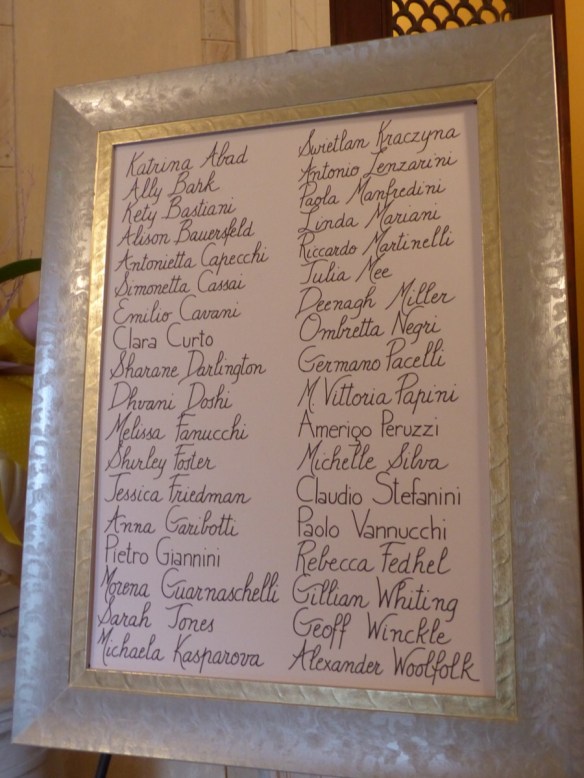 Katrina Abad
Ally Bark
Kety Bastiani
Alison Bauersfeld
Antonietta Capecchi
Simonetta Cassai
Emilio Cavani
Clara Curto
Sharane Darlington
Dhvani Doshi
Melissa Fanucchi
Shirley Foster
Jessica Friedman
Anna Garibotti
Pietro Giannini
Morena Guarnaschelli
Sarah Jones
Michaela Kasparova
Swietlan Kraczyna
Antonio Lenzarini
Paola Manfredini
Linda Mariani
Riccardo Martinelli
Julia Mee
Deenagh Miller
Ombretta Negri
Germano Pacelli
M. Vittoria Papini
Amerigo Peruzzi
Michelle Silva
Claudio Stefanini
Paolo Vannucchi
Rebecca Fedhel
Gillian Whiting
Geoff Winckle
Alexander Woolfolk